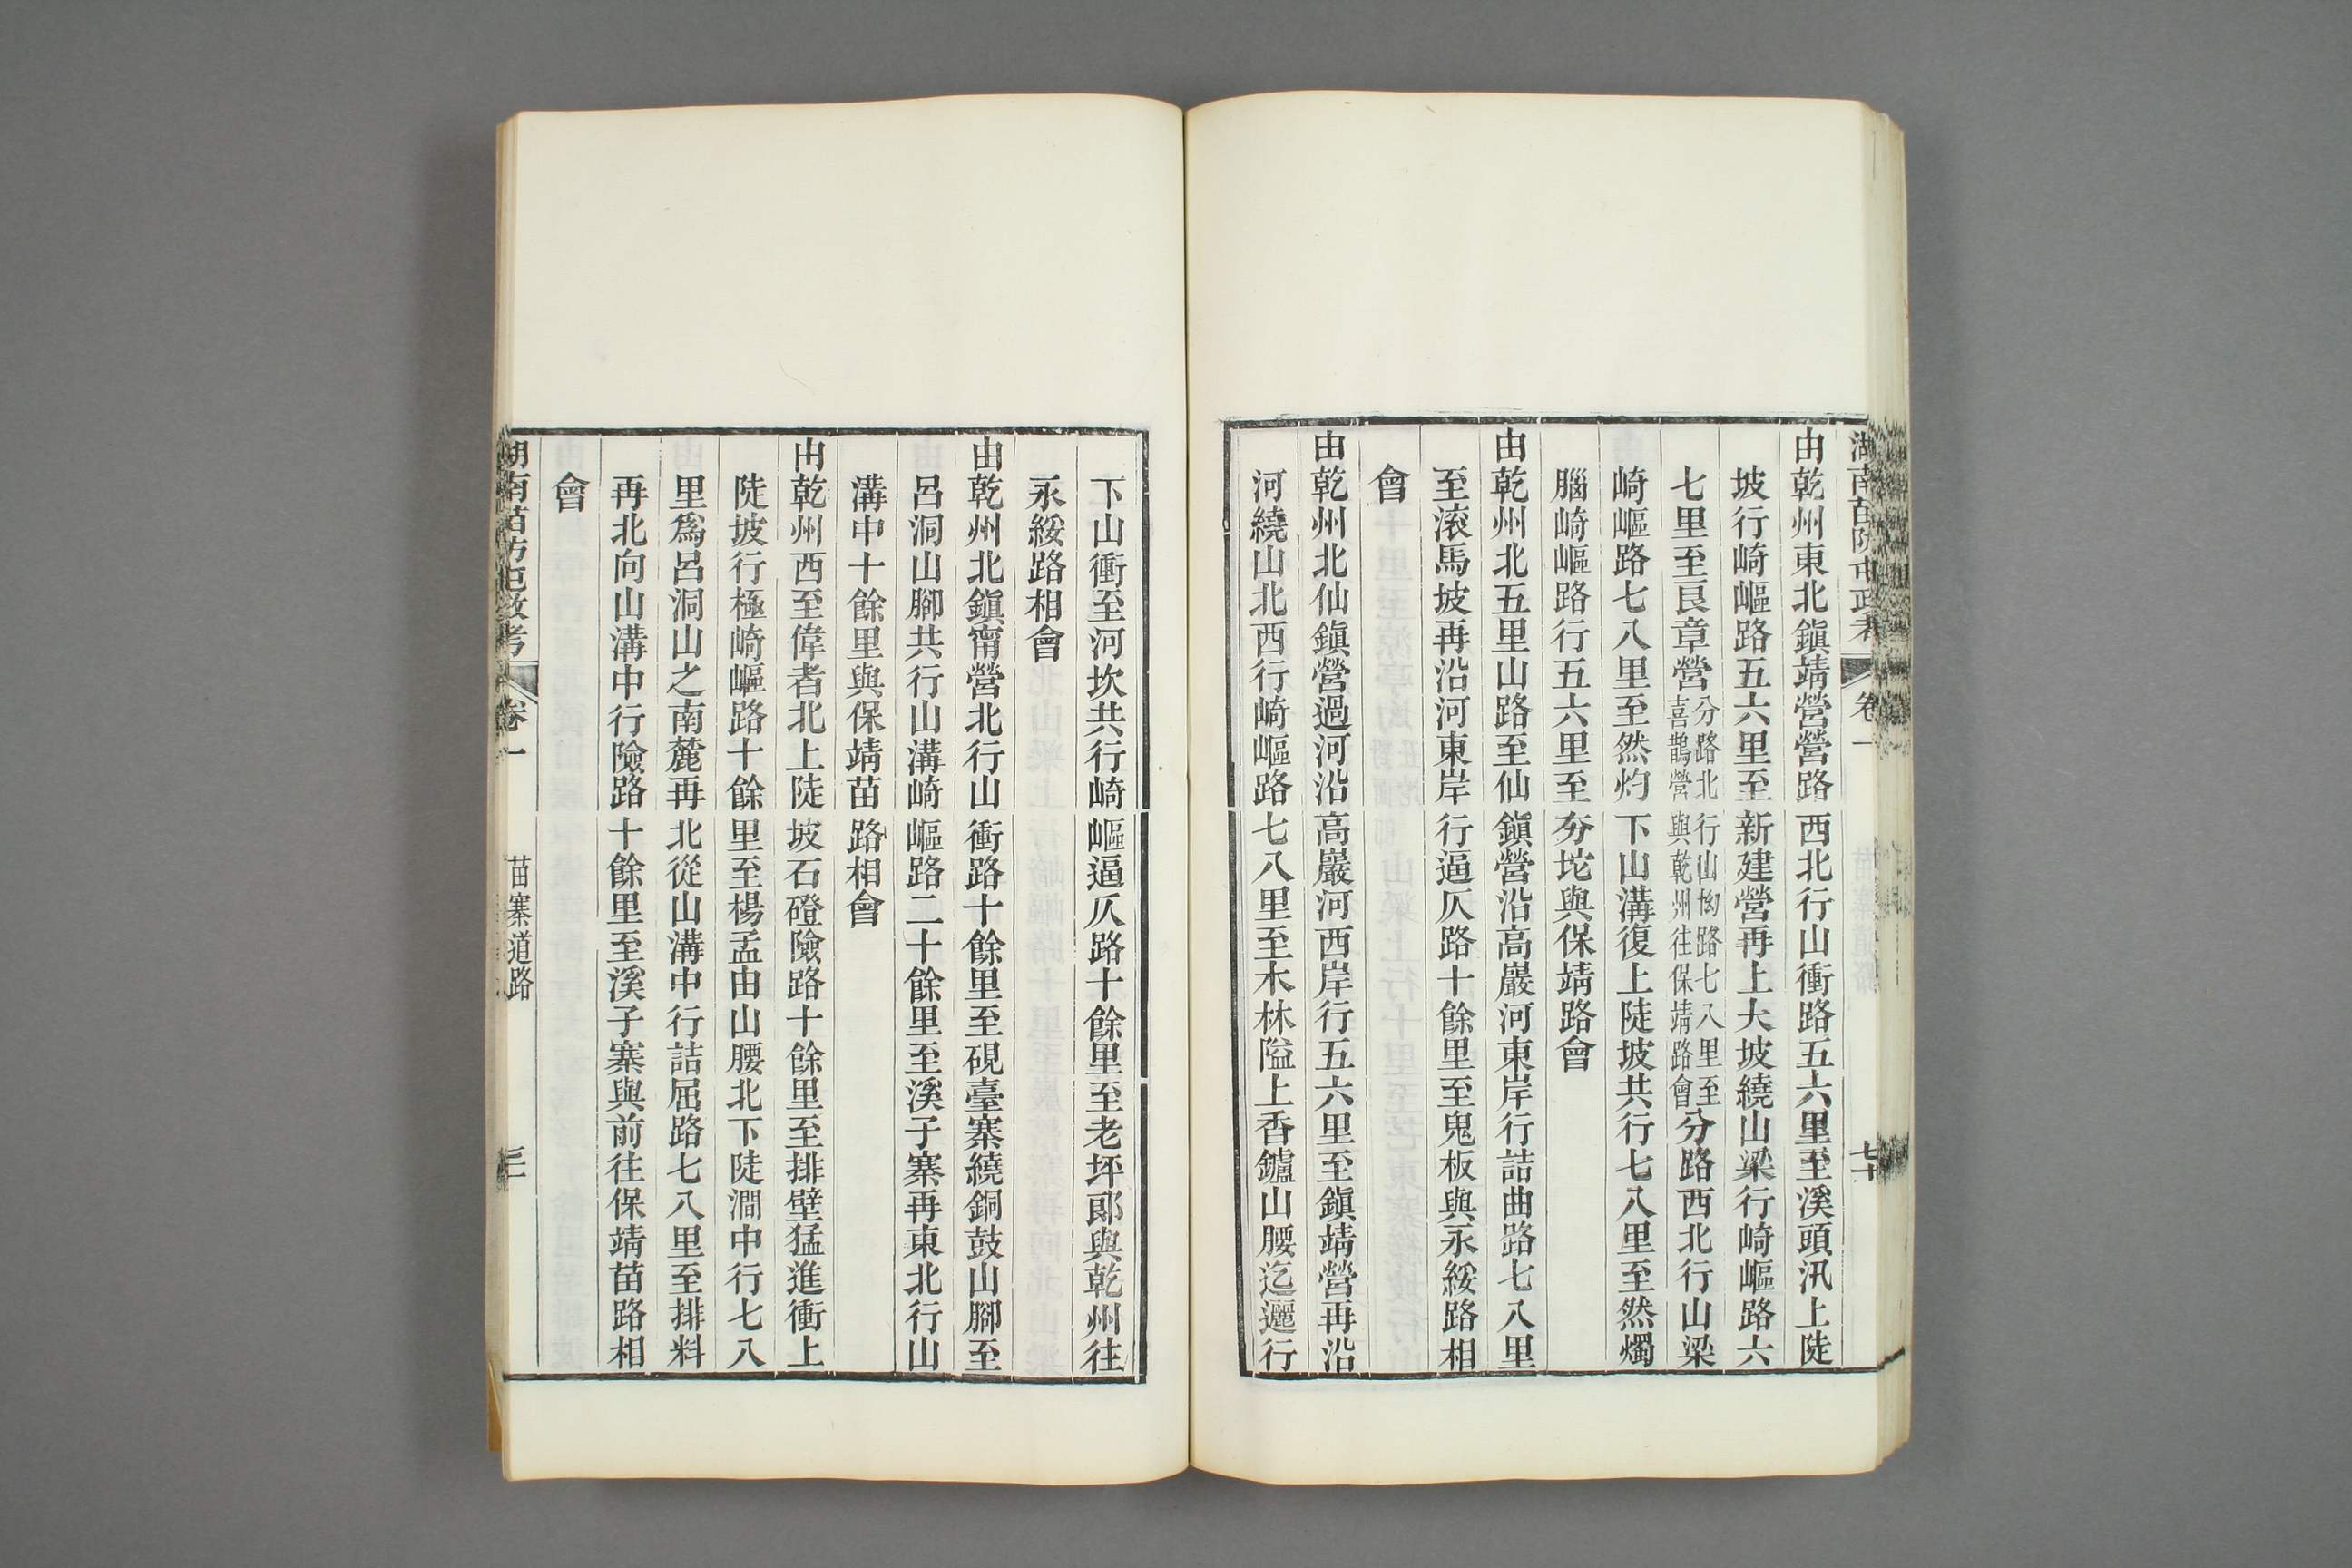 湖南苗防屯政考 卷一 七十
由乾州東北鎭靖營營路西北行山衝路五六里至溪頭汛上陡
坡行崎嶇路五六里至新建營再上大坡繞山梁行崎嶇路六
七里至艮章營分路北行山坳路七八里至喜鵲營與乾州往保靖路會分路西北行山梁
崎嶇路七八里至然灼下山溝復上陡坡共行七八里至然燭
腦崎嶇路行五六里至夯坨與保靖路會
由乾州北五里山路至仙鎭營沿高巖河東岸行詰曲路七八里
至滚馬坡再沿河東岸行逼仄路十餘里至鬼板與永綏路相
會
由乾州北仙鎭營過河沿高巖河西岸行五六里至鎭靖營再沿
河繞山北西行崎嶇路七八里至木林隘上香鑪山腰迄邐行
下山衝至河坎共行崎嶇逼仄路十餘里至老坪郞與乾州往
永綏路相會
由乾州北鎭甯營北行山衝路十餘里至硯臺寨繞銅鼓山腳至
呂洞山腳共行山溝崎嶇路二十餘里至溪子寨再東北行山
溝中十餘里與保靖苗路相會
由乾州西至偉者北上陡坡石磴險路十餘里至排壁猛進衝上
陡坡行極崎嶇路十餘里至楊孟由山腰北下陡澗中行七八
里爲呂洞山之南麓再北從山溝中行詰屈路七八里至排料
再北向山溝中行險路十餘里至溪子寨與前往保靖苗路相
會
湖南苗防屯政考 卷一 苗寨道路